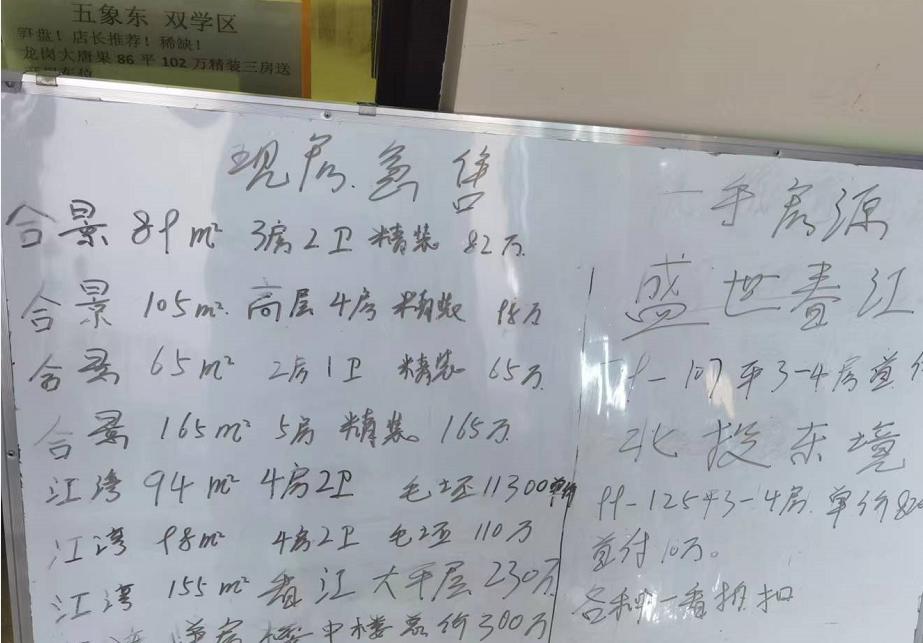 五象东 双学区
笋盘！店长推荐！稀缺！
龙岗大唐果 86 平 102 万精装三房送
现房急售
合景 89m² 3房2卫 精装 82万
合景 105m² 高层 4房 精装 98万
合景 65m² 2房1卫 精装 65万
合景 165m² 5房 精装 165万
江湾 94m² 4房2卫 毛坯 11300单价
江湾 98m² 4房2卫 毛坯 110万
江湾 155m² 看江大平层 230万
楼中楼总价300万
一手房源
盛世春江
9-107平3-4房首付
北投东境
99-125平3-4房.单价820
首付10万。
各种折扣